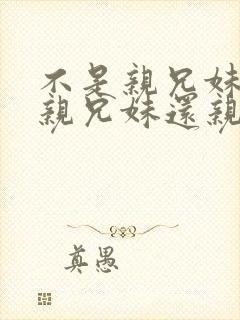 不是親兄妹
親兄妹還親
真愚